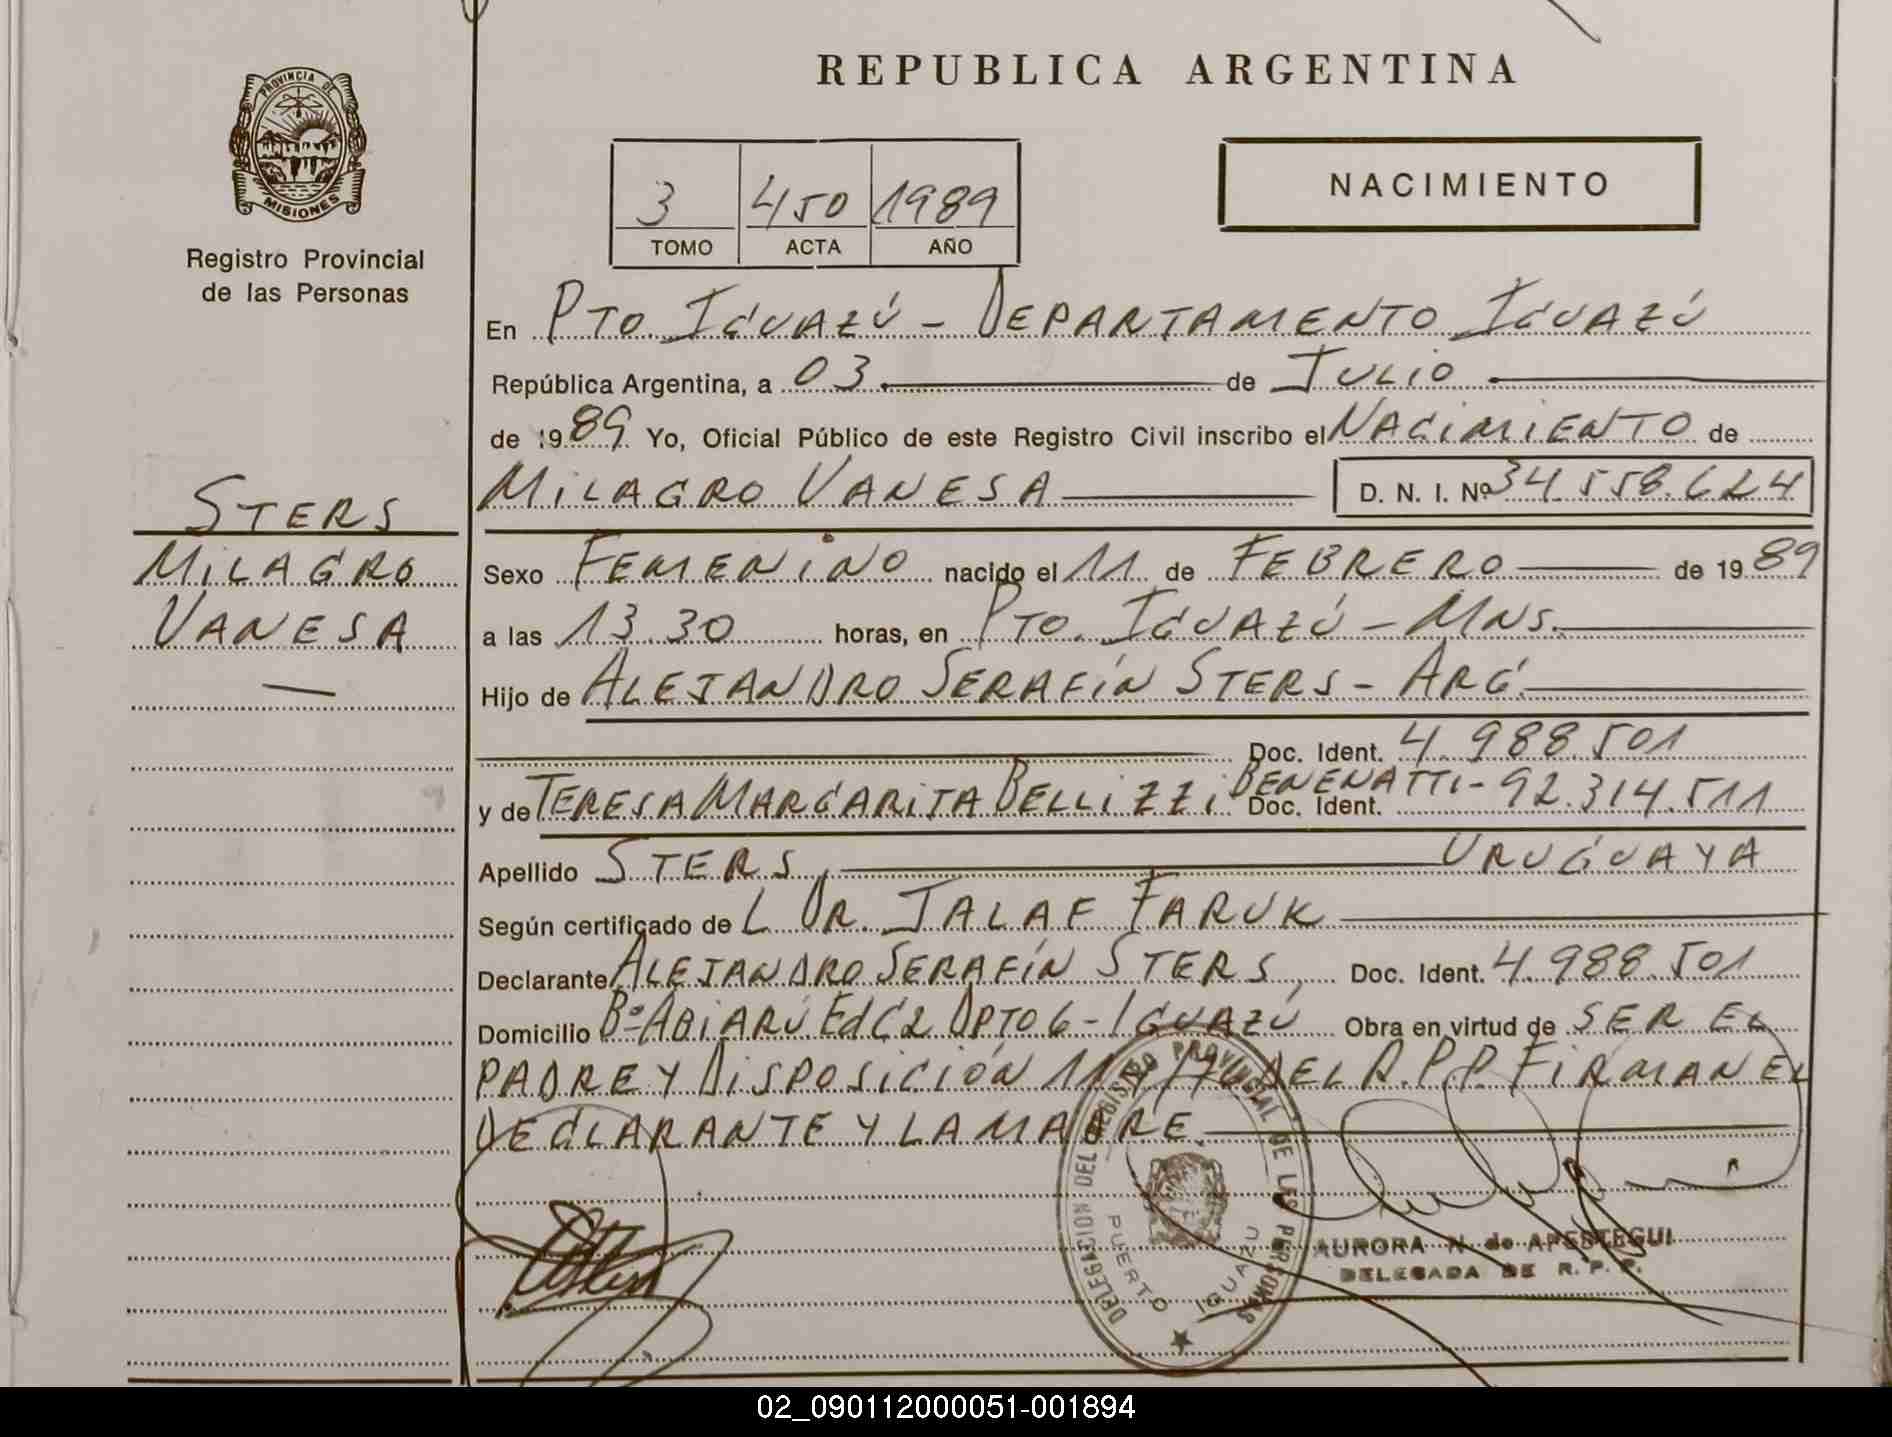 REPUBLICA ARGENTINA
PROVINCIA DE
MISIONES
Registro Provincial
de las Personas
3 450 1989
TOMO ACTA AÑO
NACIMIENTO
En PTO. IGUAZÚ - DEPARTAMENTO IGUAZÚ
República Argentina, a 03 de JULIO
de 1989 Yo, Oficial Público de este Registro Civil inscribo el NACIMIENTO de
MILAGRO VANESA D. N. I. Nº 34.558.624
STERS
MILAGRO
VANESA
Sexo FEMENINO nacido el 11 de FEBRERO de 1989
a las 13.30 horas, en PTO. IGUAZÚ - MNS.
Hijo de ALEJANDRO SERAFÍN STERS - ARG.
Doc. Ident. 4.988.501
y de TERESA MARGARITA BELLIZZI BENENATTI - Doc. Ident. 92.314.511
Apellido STERS URUGUAYA
Según certificado de L DR. JALAF FARUK
Declarante ALEJANDRO SERAFÍN STERS, Doc. Ident. 4.988.501
Domicilio Bº ABIARÚ Ed C2 DPTO 6 - IGUAZÚ Obra en virtud de SER EL
PADRE Y DISPOSICIÓN DEL R.P.P. FIRMAN EL
DECLARANTE Y LA MADRE.
DELEGACION DEL REGISTRO PROVINCIAL DE LAS PERSONAS
PUERTO IGUAZU
AURORA N. de APESTEGUI
DELEGADA DE R. P. P.
02_090112000051-001894